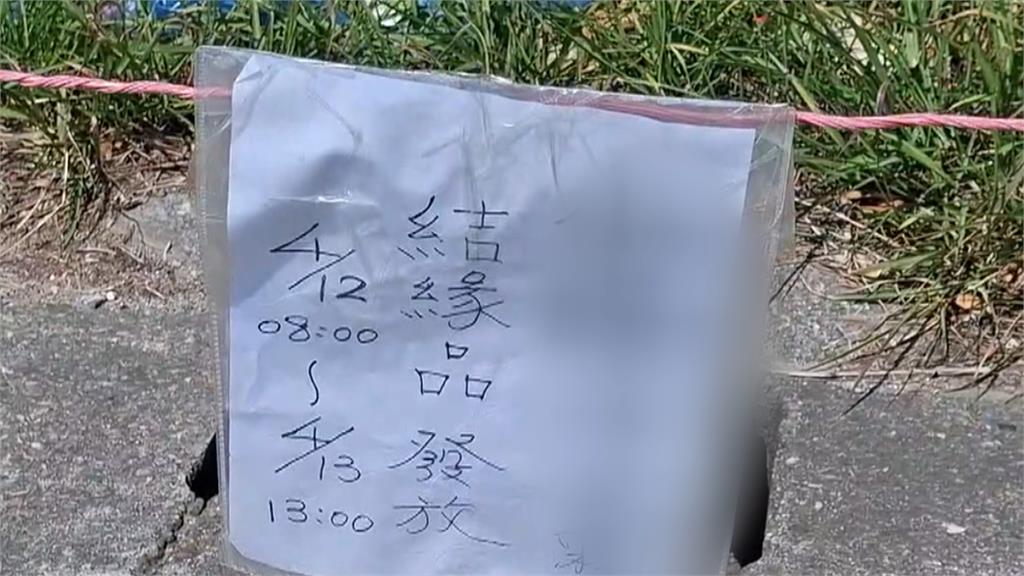 結緣品發放
4/12
08:00
~
4/13
13:00